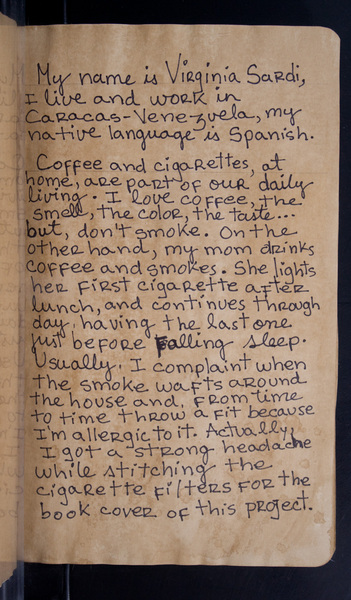 My name is Virginia Sardi,
I live and work in
Caracas-Venezuela, my
native language is Spanish.
Coffee and cigarettes, at
home, are part of our daily
living. I love coffee, the
smell, the color, the taste...
but, don't smoke. On the
other hand, my mom drinks
coffee and smokes. She lights
her first cigarette after
lunch, and continues through
day, having the last one
just before falling sleep.
Usually, I complaint when
the smoke wafts around
the house and, from time
to time throw a fit because
I'm allergic to it. Actually,
I got a strong headache
while stitching the
cigarette filters for the
book cover of this project.